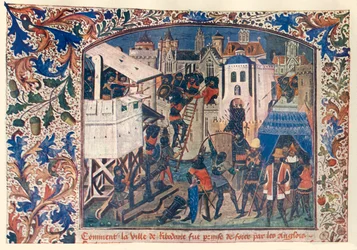 Comment la ville de Ribedane fut prinse de force par les anglois